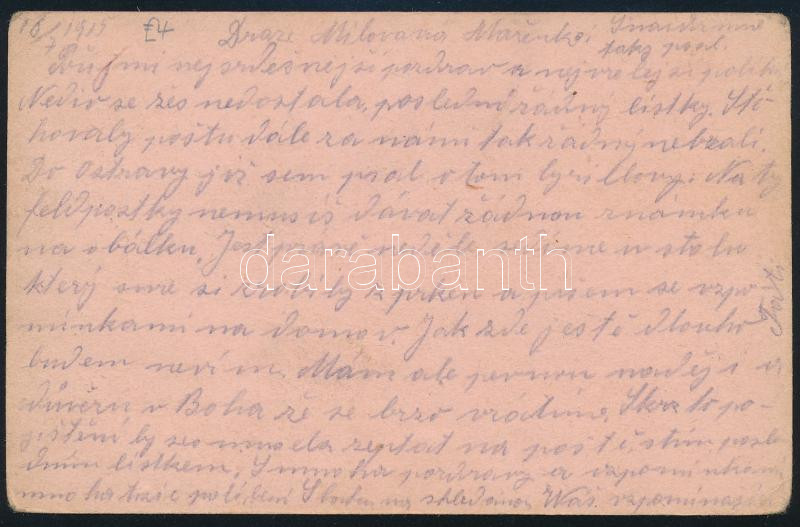 18/7 1915 Draze Milovana Mařenko!
Přijmi nejsrdešnejši pozdrav a nejvrelejsi polib
Nediv se žes nedostala, poslední řádný lístky. Stě
hovaly poštu dále za námi tak řádný nebzali.
Do Ostravy již sem psal o tom Cyrillovy. Na ty
feldpostky nemusíš dávat žádnou známku
na obálku. Jest právě neděle sedíme u stolu
který sme si zrobily z prken a písem se vzpo
mínkami na domov. Jak zde ještě dlouho
budem nevím. Mám ale pevnou naději a
důvěru v Boha že se brzo vrátíme. Skrz to po-
jištění by seo mnoela zeptat na poště, stím posle
dním lístkem. S mnoha pozdravy a vzpomínkam
mnohatisic políbení S Bohem na shledanou Wáš vzpomínající
darabanth